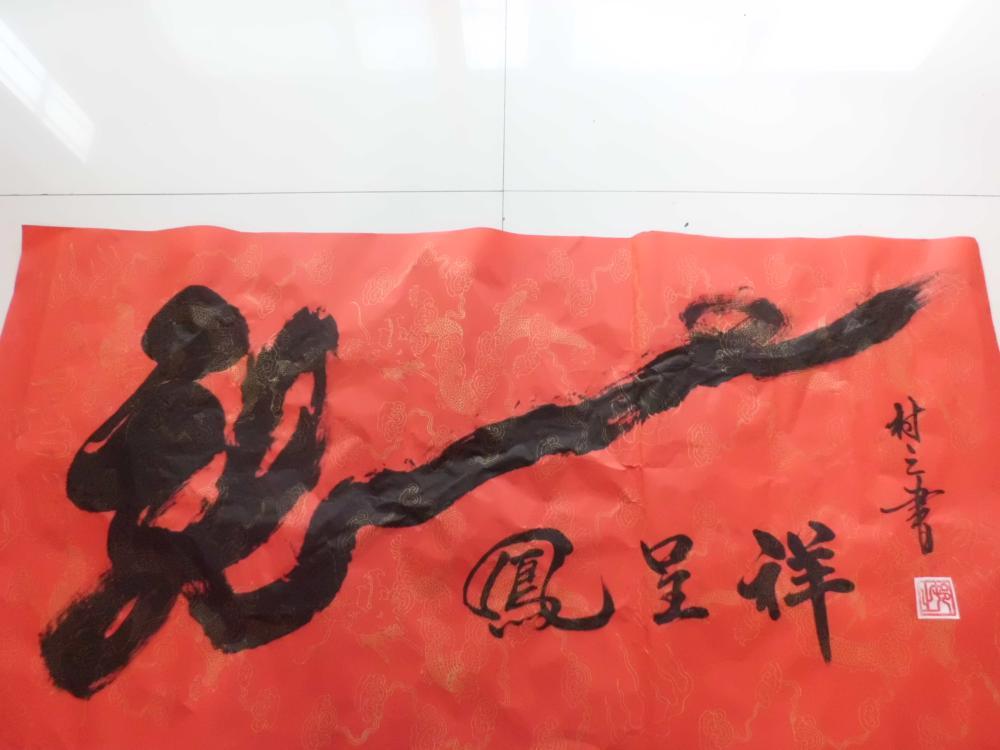 龍
鳳呈祥
村之書